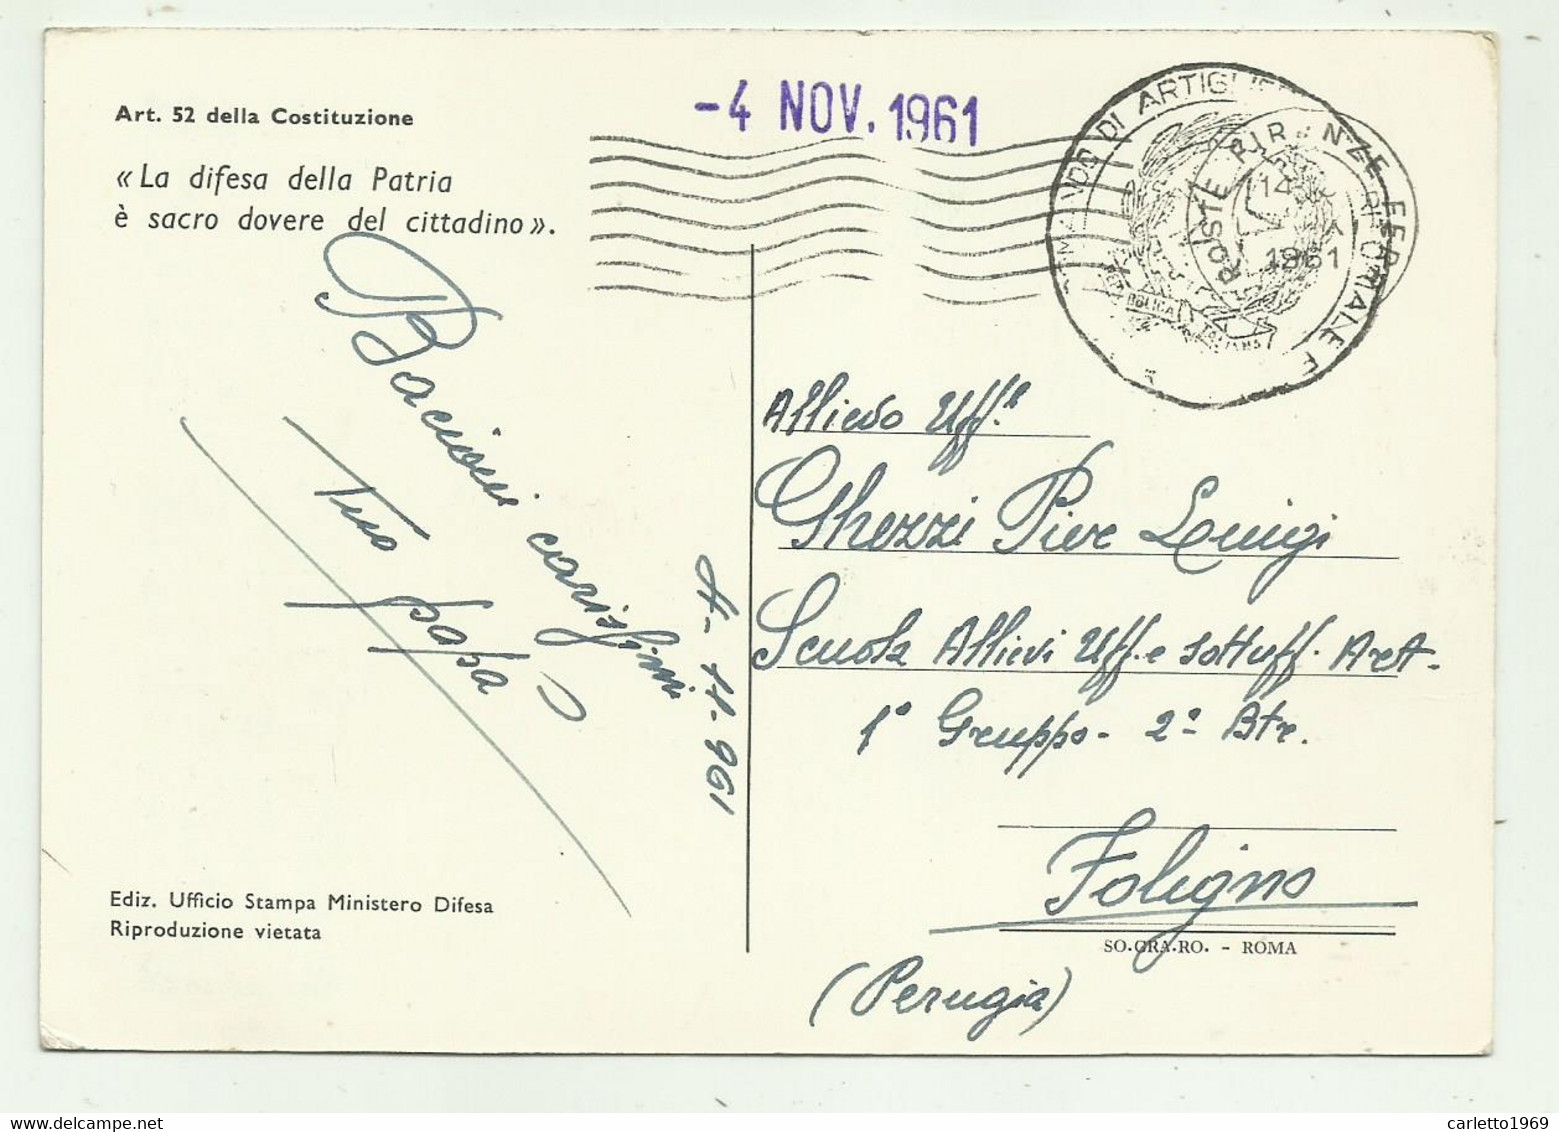 Art. 52 della Costituzione
«La difesa della Patria
è sacro dovere del cittadino».
Bacioni carissimi
Tuo papà
4-11-961
Ediz. Ufficio Stampa Ministero Difesa
Riproduzione vietata
-4 NOV. 1961
DI ARTIGLIE
POSTE FIRENZE FER
14
1961
ITALIANA
Allievo Uff.le
Ghezzi Pier Luigi
Scuola Allievi Uff. e Sottuff. Art.
1° Gruppo - 2ª Btr.
Foligno
SO.GRA.RO. - ROMA
(Perugia)
carletto1969